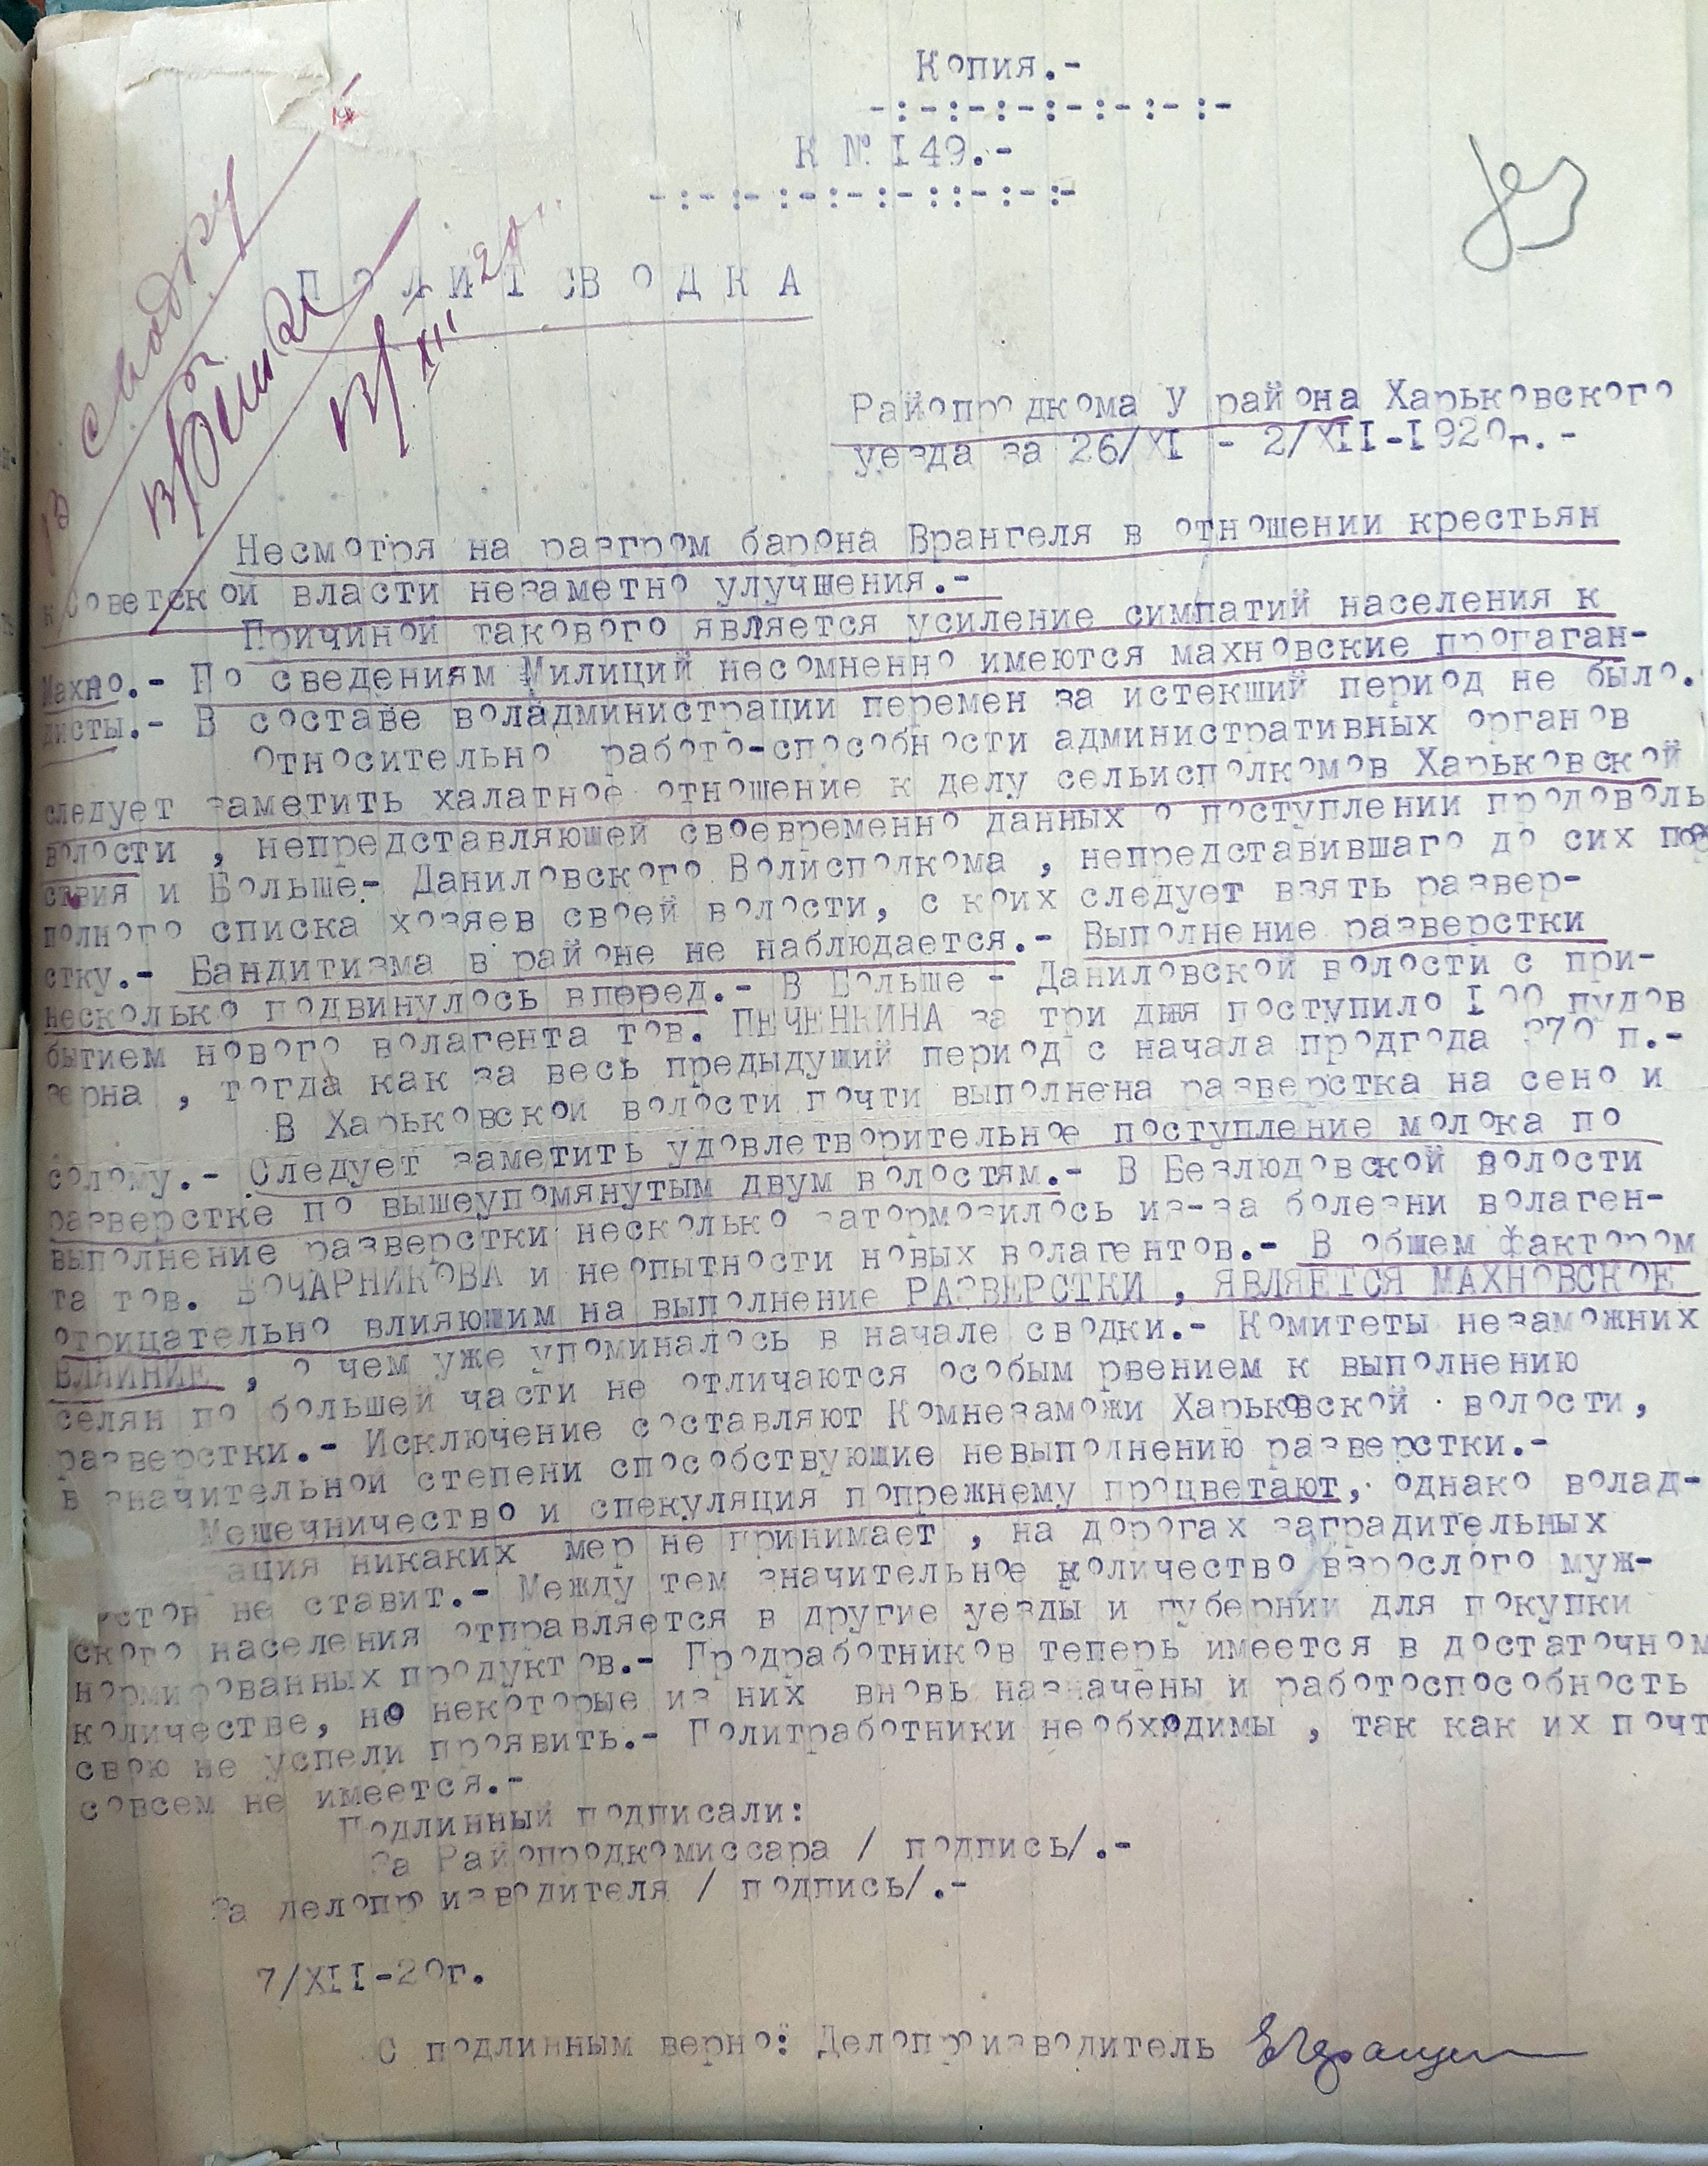 Копия.-
-:-:-:-:-:-:-:-
К № I49.-
-:-:-:-:-:-::-:-:-
В сводку
20
XII
ПОЛИТСВОДКА
Райопродкома У района Харьковского
уезда за 26/XI - 2/XII-I920г.-
Несмотря на разгром барона Врангеля в отношении крестьян
к Советской власти незаметно улучшения.-
Причиной такового является усиление симпатий населения к
Махно.- По сведениям Милиций несомненно имеются махновские пропаган-
дисты.- В составе воладминистрации перемен за истекший период не было.
Относительно работо-способности административных органов
следует заметить халатное отношение к делу сельисполкомов Харьковской
волости , непредставляюшей своевременно данных о поступлении продоволь
ствия и Больше- Даниловского Волисполкома , непредставившаго до сих пор
полного списка хозяев своей волости, с коих следует взять развер-
стку.- Бандитизма в районе не наблюдается.- Выполнение разверстки
несколько подвинулось вперед.- В Больше - Даниловской волости с при-
бытием нового волагента тов. ПЕЧЕНКИНА за три дня поступило I00 пудов
зерна , тогда как за весь предыдущий период с начала продгода 370 п.-
В Харьковской волости почти выполнена разверстка на сено и
солому.- Следует заметить удовлетворительное поступление молока по
разверстке по вышеупомянутым двум волостям.- В Безлюдовской волости
выполнение разверстки несколько затормозилось из-за болезни волаген-
та тов. БОЧАРНИКОВА и неопытности новых волагентов.- В обшем фактором
отрицательно влияюшим на выполнение РАЗВЕРСТКИ , ЯВЛЯЕТСЯ МАХНОВСКОЕ
ВЛИЯНИЕ , о чем уже упоминалось в начале сводки.- Комитеты незаможних
селян по большей части не отличаются особым рвением к выполнению
разверстки.- Исключение составляют Комнезаможи Харьковской волости,
в значительной степени способствуюшие невыполнению разверстки.-
Мешечничество и спекуляция попрежнему процветают, однако волад-
ация никаких мер не принимает , на дорогах заградительных
остов не ставит.- Между тем значительное количество взрослого муж-
ского населения отправляется в другие уезды и губернии для покупки
нормированных продуктов.- Продработников теперь имеется в достаточном
количестве, но некоторые из них вновь назначены и работоспособность
свою не успели проявить.- Политработники необходимы , так как их почт
совсем не имеется.-
Подлинный подписали:
За Райопродкомиссара / подпись/.-
За делопроизводителя / подпись/.-
7/XII-20г.
С подлинным верно: Делопроизводитель